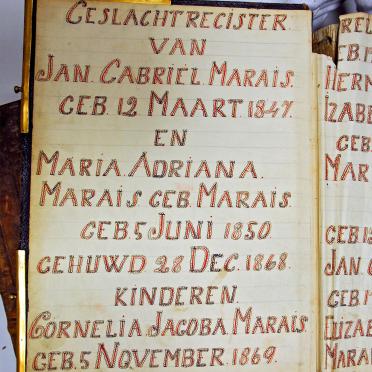 GESLACHTREGISTER
VAN
JAN. GABRIËL MARAIS.
GEB. 12 MAART. 1847.
EN
MARIA. ADRIANA.
MARAIS GEB. MARAIS.
GEB 5 JUNI 1850
GEHUWD 28 DEC. 1868.
KINDEREN.
CORNELIA JACOBA MARAIS.
GEB. 5 NOVEMBER. 1869.
GEB. 1
HERM
IZABE
GEB.
MAR
GEB. 12
JAN. G
GEB. 1
ELIZAB
MARAI